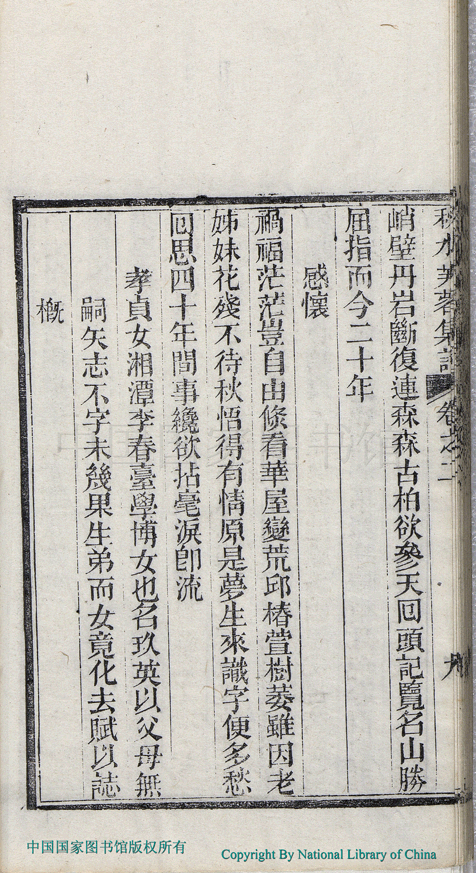 秋水芙蓉集詩 卷之二 九
峭壁丹岩斷復連森森古柏欲參天回頭記覽名山勝
屈指而今二十年
感懷
禍福茫茫豈自由倏看華屋變荒邱椿萱樹萎雖因老
姊妹花殘不待秋悟得有情原是夢生來識字便多愁
回思四十年間事纔欲拈毫淚即流
孝貞女湘潭李春臺學博女也名玖英以父母無
嗣矢志不字未幾果生弟而女竟化去賦以誌
概
中国国家图书馆版权所有
Copyright By National Library of China